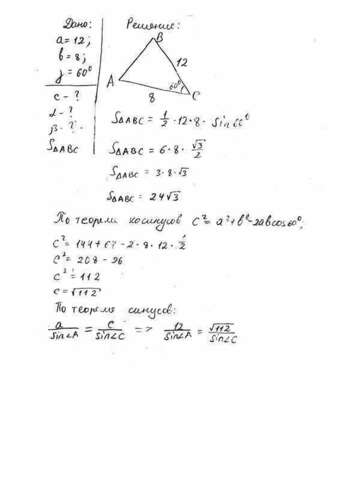 Дано:
a = 12;
b = 8;
γ = 60°
c - ?
α - ?
β - ?
S△ABC
Решение:
B
12
A
60°
8
C
S△ABC = 1/2 · 12 · 8 · sin 60°
S△ABC = 6 · 8 · √3/2
S△ABC = 3 · 8 √3
S△ABC = 24√3
По теореме косинусов c² = a² + b² - 2ab cos 60°;
c² = 144 + 64 - 2 · 8 · 12 · 1/2
c² = 208 - 96
c² = 112
c = √112
По теореме синусов:
a/sin∠A = c/sin∠C => 12/sin∠A = √112/sin∠C